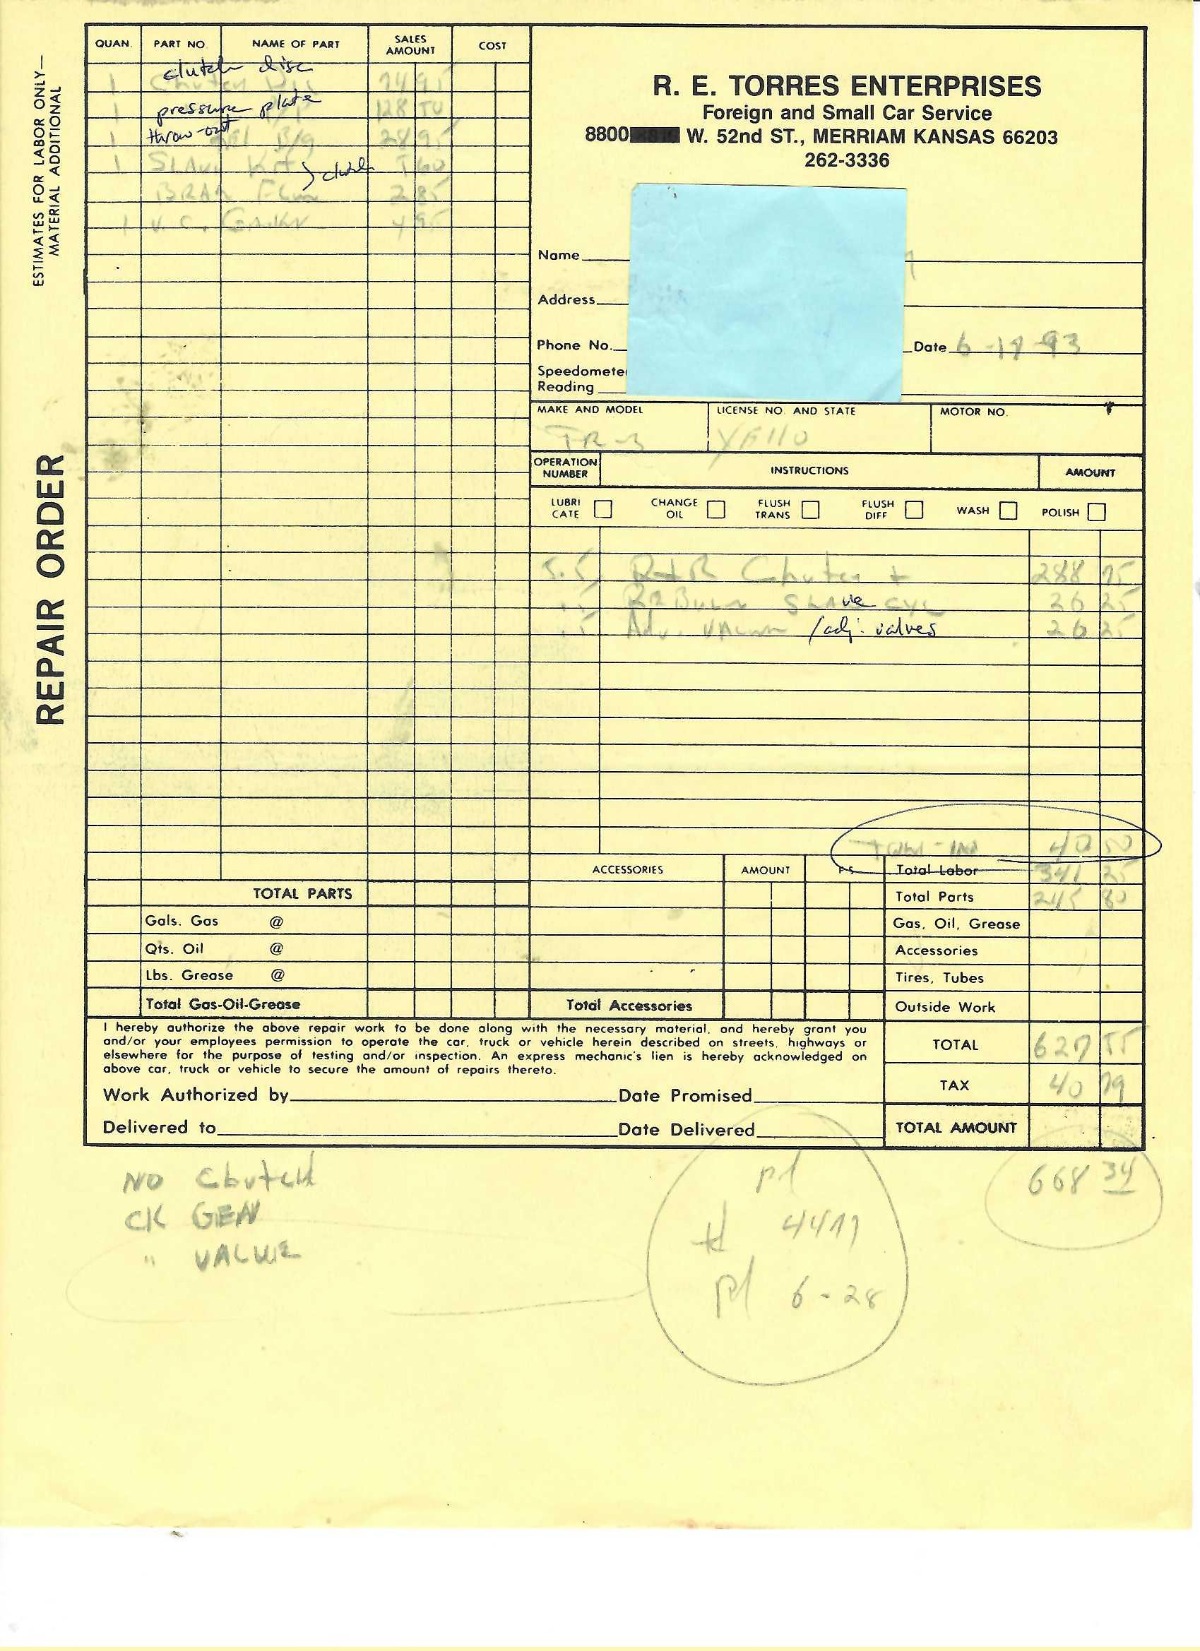 ESTIMATES FOR LABOR ONLY—
MATERIAL ADDITIONAL
REPAIR ORDER
QUAN. PART NO. NAME OF PART SALES AMOUNT COST
clutch disc
1 Clutch 74 95
pressure plate
1 128 50
throw-out
1 B/g 28 95
1 Slave Kit } clutch 5 60
2 85
1 V.C. Gasket 4 95
R. E. TORRES ENTERPRISES
Foreign and Small Car Service
8800 W. 52nd ST., MERRIAM KANSAS 66203
262-3336
Name
Address
Phone No. Date 6-19-93
Speedometer
Reading
MAKE AND MODEL LICENSE NO. AND STATE MOTOR NO.
TR-3
OPERATION NUMBER INSTRUCTIONS AMOUNT
LUBRI CATE CHANGE OIL FLUSH TRANS FLUSH DIFF WASH POLISH
5.5 R+R Clutch + 288 75
SLAVE CYL 26 25
.5 /adj. valves 26 25
Tow-in 40 50
Total Labor 341 25
Total Parts 245 80
Gas, Oil, Grease
Accessories
Tires, Tubes
Outside Work
ACCESSORIES AMOUNT
TOTAL PARTS
Gals. Gas @
Qts. Oil @
Lbs. Grease @
Total Gas-Oil-Grease Total Accessories
I hereby authorize the above repair work to be done along with the necessary material, and hereby grant you
and/or your employees permission to operate the car, truck or vehicle herein described on streets, highways or
elsewhere for the purpose of testing and/or inspection. An express mechanic's lien is hereby acknowledged on
above car, truck or vehicle to secure the amount of repairs thereto.
TOTAL 627 55
TAX 40 79
Work Authorized by Date Promised
Delivered to Date Delivered
TOTAL AMOUNT
668 34
NO Clutch
CK GEN
" VALVE
pd
# 4477
pd 6-28